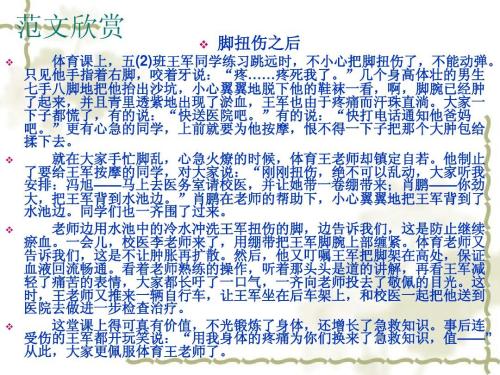 范文欣赏
脚扭伤之后
体育课上，五(2)班王军同学练习跳远时，不小心把脚扭伤了，不能动弹。
只见他手指着右脚，咬着牙说：“疼……疼死我了。”几个身高体壮的男生
七手八脚地把他抬出沙坑，小心翼翼地脱下他的鞋袜一看，啊，脚腕已经肿
了起来，并且青里透紫地出现了淤血，王军也由于疼痛而汗珠直淌。大家一
下子都慌了，有的说：“快送医院吧。”有的说：“快打电话通知他爸妈
吧。”更有心急的同学，上前就要为他按摩，恨不得一下子把那个大肿包给
揉下去。
就在大家手忙脚乱，心急火燎的时候，体育王老师却镇定自若。他制止
了要给王军按摩的同学，对大家说：“刚刚扭伤，绝不可以乱动，大家听我
安排：冯旭——马上去医务室请校医，并让她带一卷绷带来；肖鹏——你劲
大，把王军背到水池边。”肖鹏在老师的帮助下，小心翼翼地把王军背到了
水池边。同学们也一齐围了过来。
老师边用水池中的冷水冲洗王军扭伤的脚，边告诉我们，这是防止继续
瘀血。一会儿，校医李老师来了，用绷带把王军脚腕上部缠紧。体育老师又
告诉我们，这是不让肿胀再扩散。然后，他又叮嘱王军把脚架在高处，保证
血液回流畅通。看着老师熟练的操作，听着那头头是道的讲解，再看王军减
轻了痛苦的表情，大家都长吁了一口气，一齐向老师投去了敬佩的目光。这
时，王老师又推来一辆自行车，让王军坐在后车架上，和校医一起把他送到
医院去做进一步检查治疗。
这堂课上得可真有价值，不光锻炼了身体，还增长了急救知识。事后连
受伤的王军都开玩笑说：“用我身体的疼痛为你们换来了急救知识，值——”
从此，大家更佩服体育王老师了。